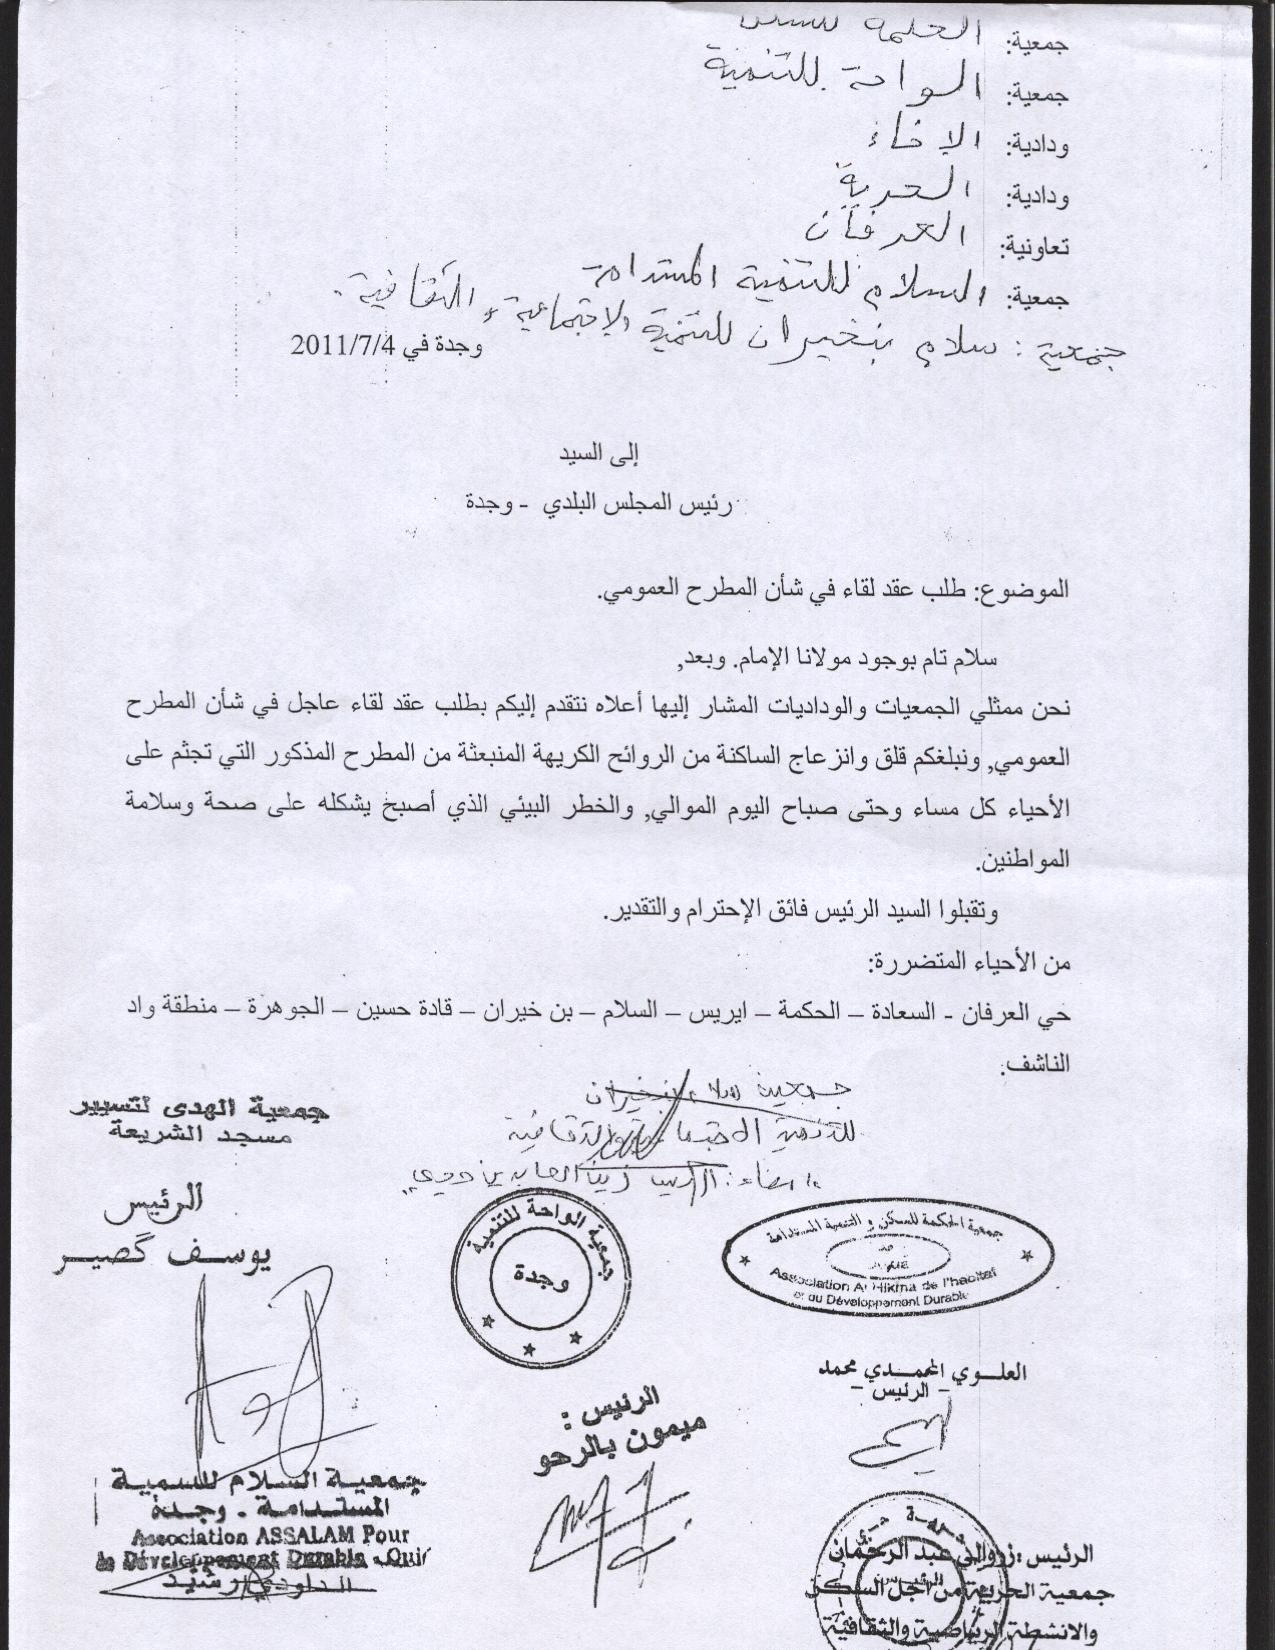 جمعية:
جمعية: الواحة للتنمية
ودادية: الإخاء
ودادية: الحرية
تعاونية: العرفان
جمعية: السلام للتنمية المستدامة
جمعية: سلام بنخيران للتنمية الاجتماعية و الثقافية.
وجدة في 2011/7/4
إلى السيد
رئيس المجلس البلدي - وجدة
الموضوع: طلب عقد لقاء في شأن المطرح العمومي.
سلام تام بوجود مولانا الإمام. وبعد,
نحن ممثلي الجمعيات والوداديات المشار إليها أعلاه نتقدم إليكم بطلب عقد لقاء عاجل في شأن المطرح
العمومي, ونبلغكم قلق وانزعاج الساكنة من الروائح الكريهة المنبعثة من المطرح المذكور التي تجثم على
الأحياء كل مساء وحتى صباح اليوم الموالي, والخطر البيئي الذي أصبح يشكله على صحة وسلامة
المواطنين.
وتقبلوا السيد الرئيس فائق الإحترام والتقدير.
من الأحياء المتضررة:
حي العرفان - السعادة – الحكمة – ايريس – السلام – بن خيران – قادة حسين – الجوهرة – منطقة واد
الناشف.
جمعية سلام بنخيران
للتنمية الاجتماعية والثقافية
إمضاء: الرئيس زين العابدين
جمعية الهدى لتسيير
مسجد الشريعة
الرئيس
يوسف گصير
جمعية الواحة للتنمية
وجدة
جمعية الحكمة للسكن و التنمية المستدامة
وجدة
Association Al Hikma de l'habitat
et du Développement Durable
العلوي المحمدي محمد
- الرئيس -
الرئيس:
ميمون بالرحو
جمعية السلام للتنمية
المستدامة - وجدة
Association ASSALAM Pour
le Développement Durable - Ouj
الداودي رشيد
الرئيس: زروالي عبد الرحمان
جمعية الحرية من أجل السكن
والانشطة الرياضية والثقافية